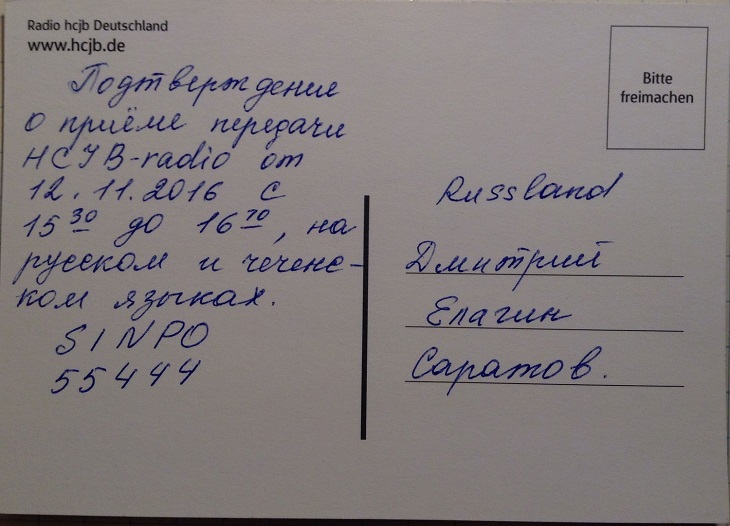 Radio hcjb Deutschland
www.hcjb.de
Подтверждение
о приёме передачи
HCJB-radio от
12.11.2016 с
15 30 до 16 70, на
русском и чеченс-
ком языках.
SINPO
55444
Bitte
freimachen
Russland
Дмитрий
Елагин
Саратов.